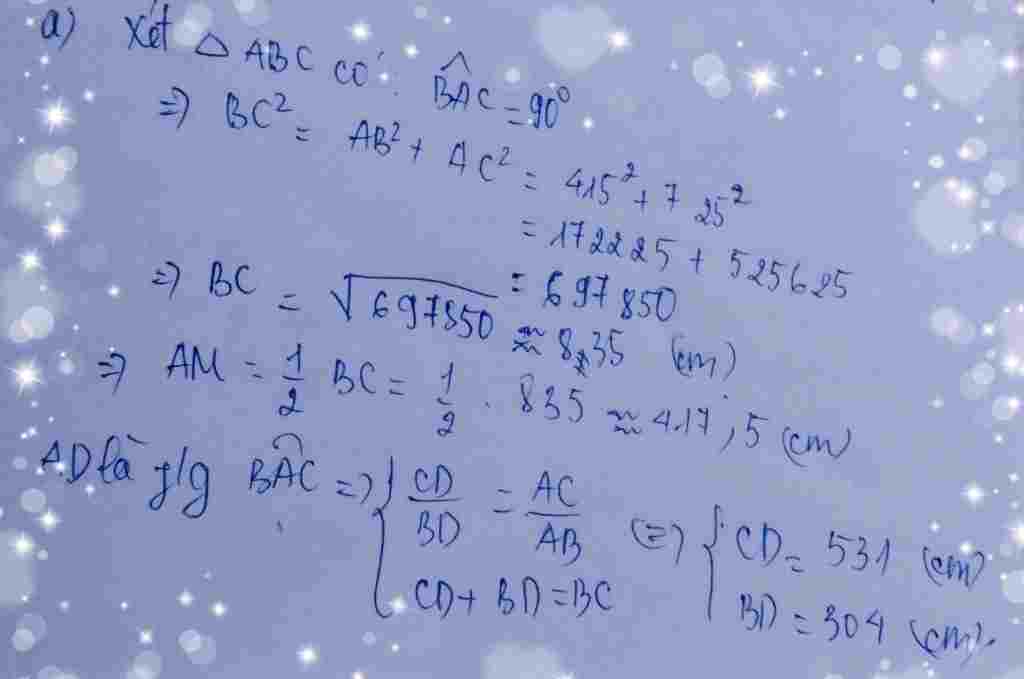 a) Xét △ABC có: B̂AC = 90°
=> BC² = AB² + AC² = 415² + 725²
= 172225 + 525625
= 697850
=> BC = √697850 ≈ 835 (cm)
=> AM = 1/2 BC = 1/2 . 835 ≈ 417,5 (cm)
AD là g/g B̂AC => { CD/BD = AC/AB (=) { CD = 531 (cm)
CD + BD = BC BD = 304 (cm).